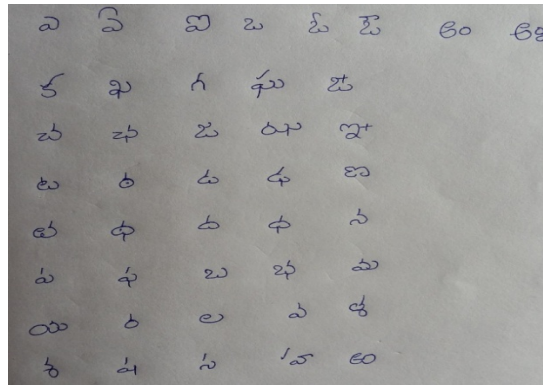 ఎ ఏ ఐ ఒ ఓ ఔ అం అః
క ఖ గ ఘ ఙ
చ ఛ జ ఝ ఞ
ట ఠ డ ఢ ణ
త థ ద ధ న
ప ఫ బ భ మ
య ర ల వ శ
శ ష స హ